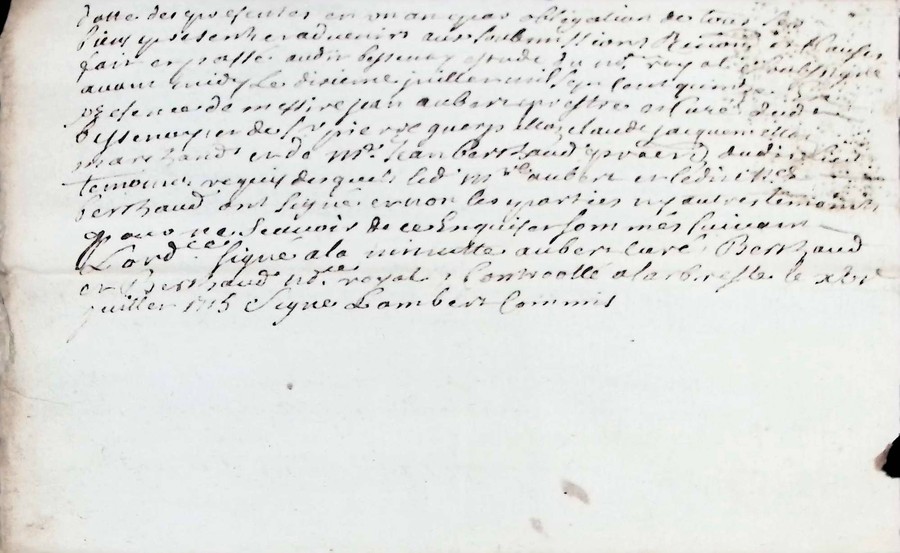 datte des presentes en un an par obligation de tous ses
biens presents et advenir aux soubmissions Renon. et clauses
fait et passé audit bessenay estude du no.re royal soubsigné
avant midy Le disieme juillet mil sept cent quinze
presence de messire jean aubert prestre et Curé dud.
bessenay et de Sr pierre claude jacquemetton
marchand et de Mre Jean Berthaud audit lieu
temoins requis desquels led. Mre aubert et ledit
berthaud ont signé et non les parties ny autres temoins
pour ne scavoir de ce Enquis et sommés suivant
Lord.ce signé a la minutte aubert curé Berthaud
et Berthaud no.re royal, Controllé a larbresle le
juillet 1715 Signé Lambert Commis